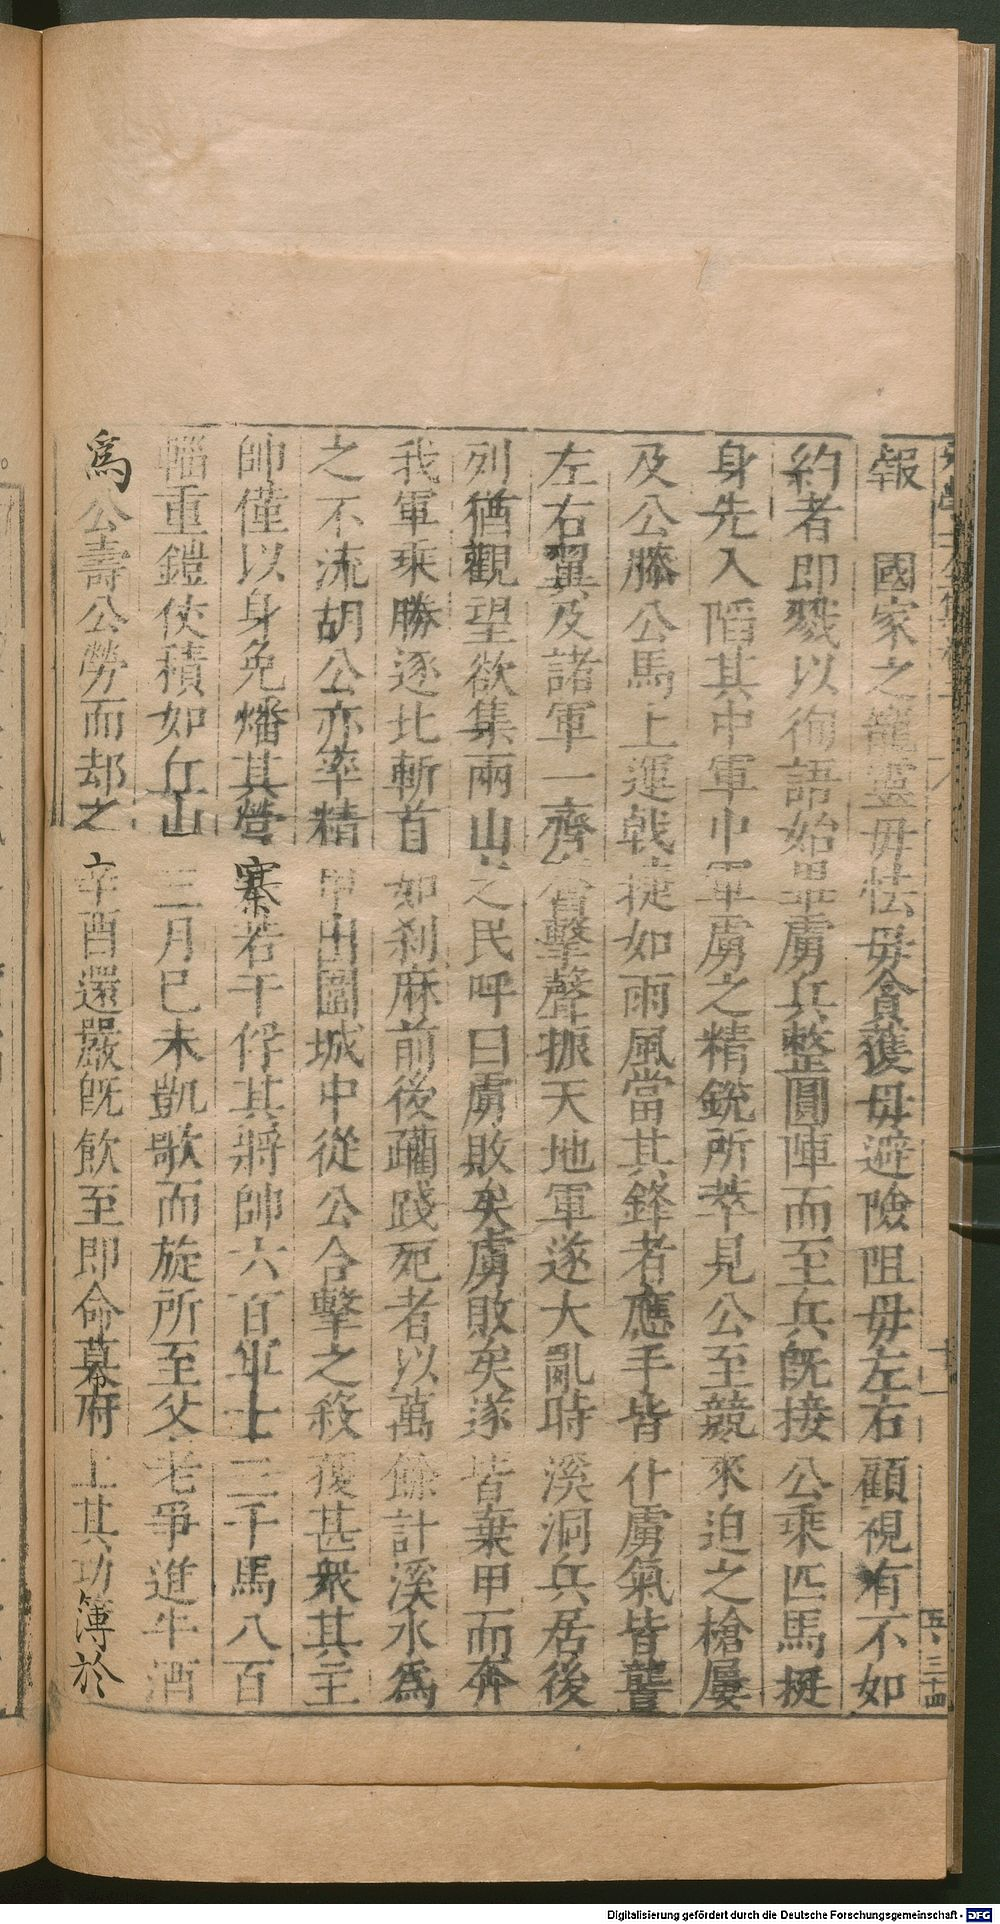 報　國家之寵靈毋怯毋貪獲毋避險阻毋左右顧視有不如
約者即戮以徇語始畢虜兵整圓陣而至兵旣接公乘匹馬挺
身先入陷其中軍中軍虜之精銳所萃見公至競來迫之槍屢
及公滕公馬上運戟捷如雨風當其鋒者應手皆仆虜氣皆讋
左右翼及諸軍一齊奮擊聲振天地軍遂大亂時溪洞兵居後
列猶觀望欲集兩山之民呼曰虜敗矣虜敗矣遂皆棄甲而奔
我軍乘勝逐北斬首如刹麻前後躪踐死者以萬餘計溪水爲
之不流胡公亦率精甲出圍城中從公合擊之殺獲甚衆其主
帥僅以身免燔其營寨若干俘其將帥六百軍士三千馬八百
輜重鎧仗積如丘山三月己未凱歌而旋所至父老爭進牛酒
爲公壽公勞而却之辛酉還嚴旣飲至即命幕府上其功簿於
五、三十四
Digitalisierung gefördert durch die Deutsche Forschungsgemeinschaft - DFG